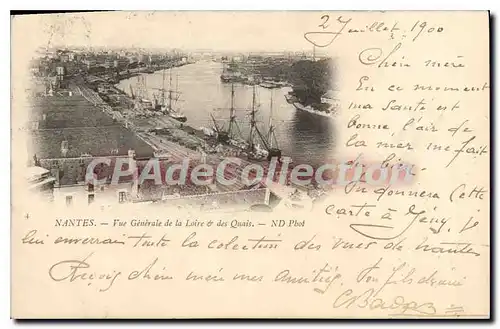 2 Juillet 1900
Chère mère
En ce moment
ma Santé est
bonne, l'air de
la mer me fait
bien.
Tu donnera Cette
carte à Jény, je
lui enverrai toute la colection des vues de nantes
Reçois chère mère mes Amitiés, Ton fils chéri
CPADéfrance.com
NANTES. - Vue Générale de la Loire & des Quais. - ND Phot